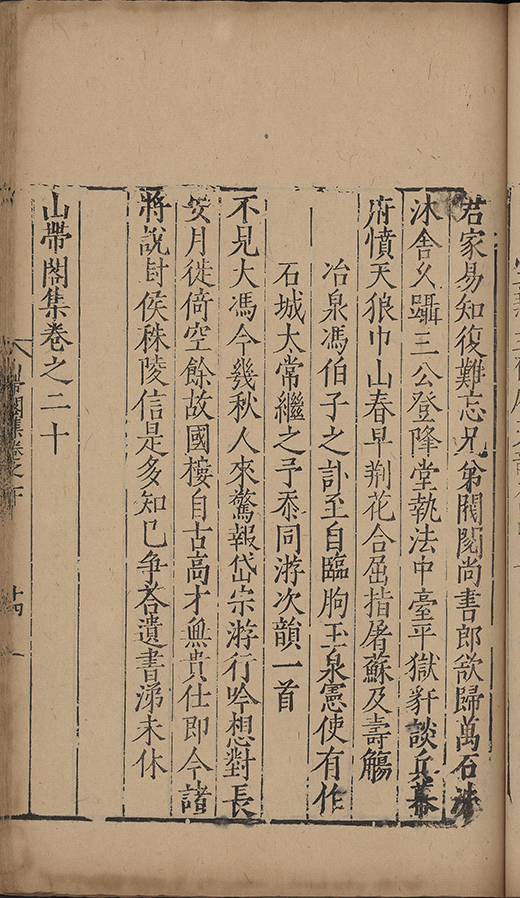 君家易知復難忘兄弟閥閱尚書郎欲歸萬石洗
沐舍久躡三公登降堂執法中臺平獄犴談兵幕
府憤天狼巾山春早荆花合屈指屠蘇及壽觴
冶泉馮伯子之訃至自臨朐玉泉憲使有作
石城大常繼之予忝同游次韻一首
不見大馮今幾秋人來驚報岱宗游行吟想對長
安月徙倚空餘故國樓自古高才無貴仕即今諸
將說封侯秣陵信是多知己爭答遺書涕未休
山帶閣集卷之二十
山帶閣集卷之
十四